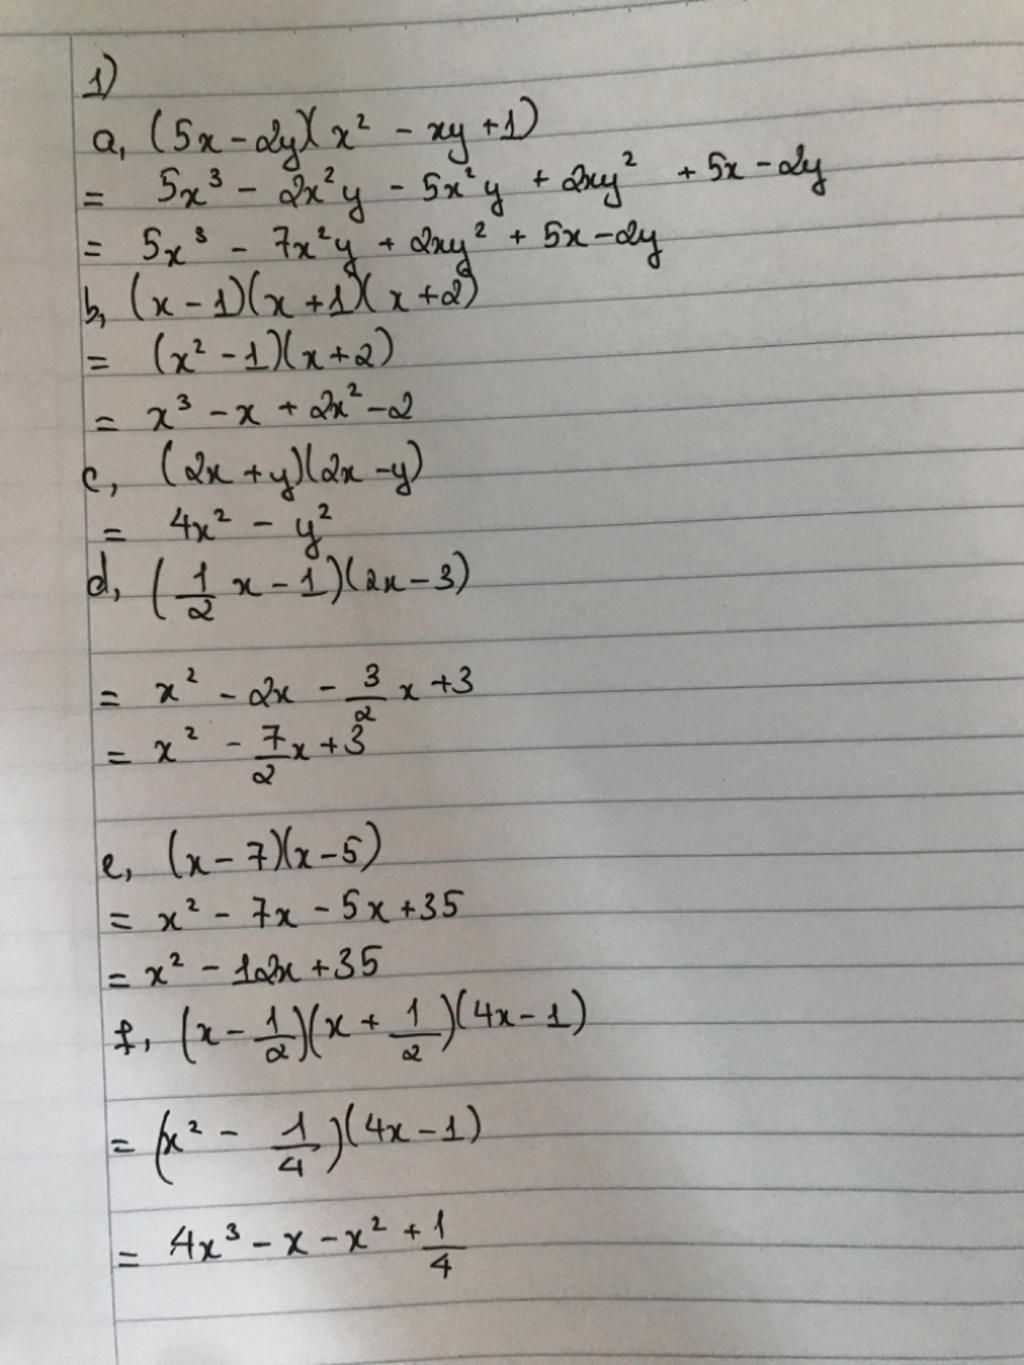 1)
a, (5x - 2y)(x² - xy + 1)
= 5x³ - 2x²y - 5x²y + 2xy² + 5x - 2y
= 5x³ - 7x²y + 2xy² + 5x - 2y
b, (x - 1)(x + 1)(x + 2)
= (x² - 1)(x + 2)
= x³ - x + 2x² - 2
c, (2x + y)(2x - y)
= 4x² - y²
d, (1/2 x - 1)(2x - 3)
= x² - 2x - 3/2 x + 3
= x² - 7/2 x + 3
e, (x - 7)(x - 5)
= x² - 7x - 5x + 35
= x² - 12x + 35
f, (x - 1/2)(x + 1/2)(4x - 1)
= (x² - 1/4)(4x - 1)
= 4x³ - x - x² + 1/4